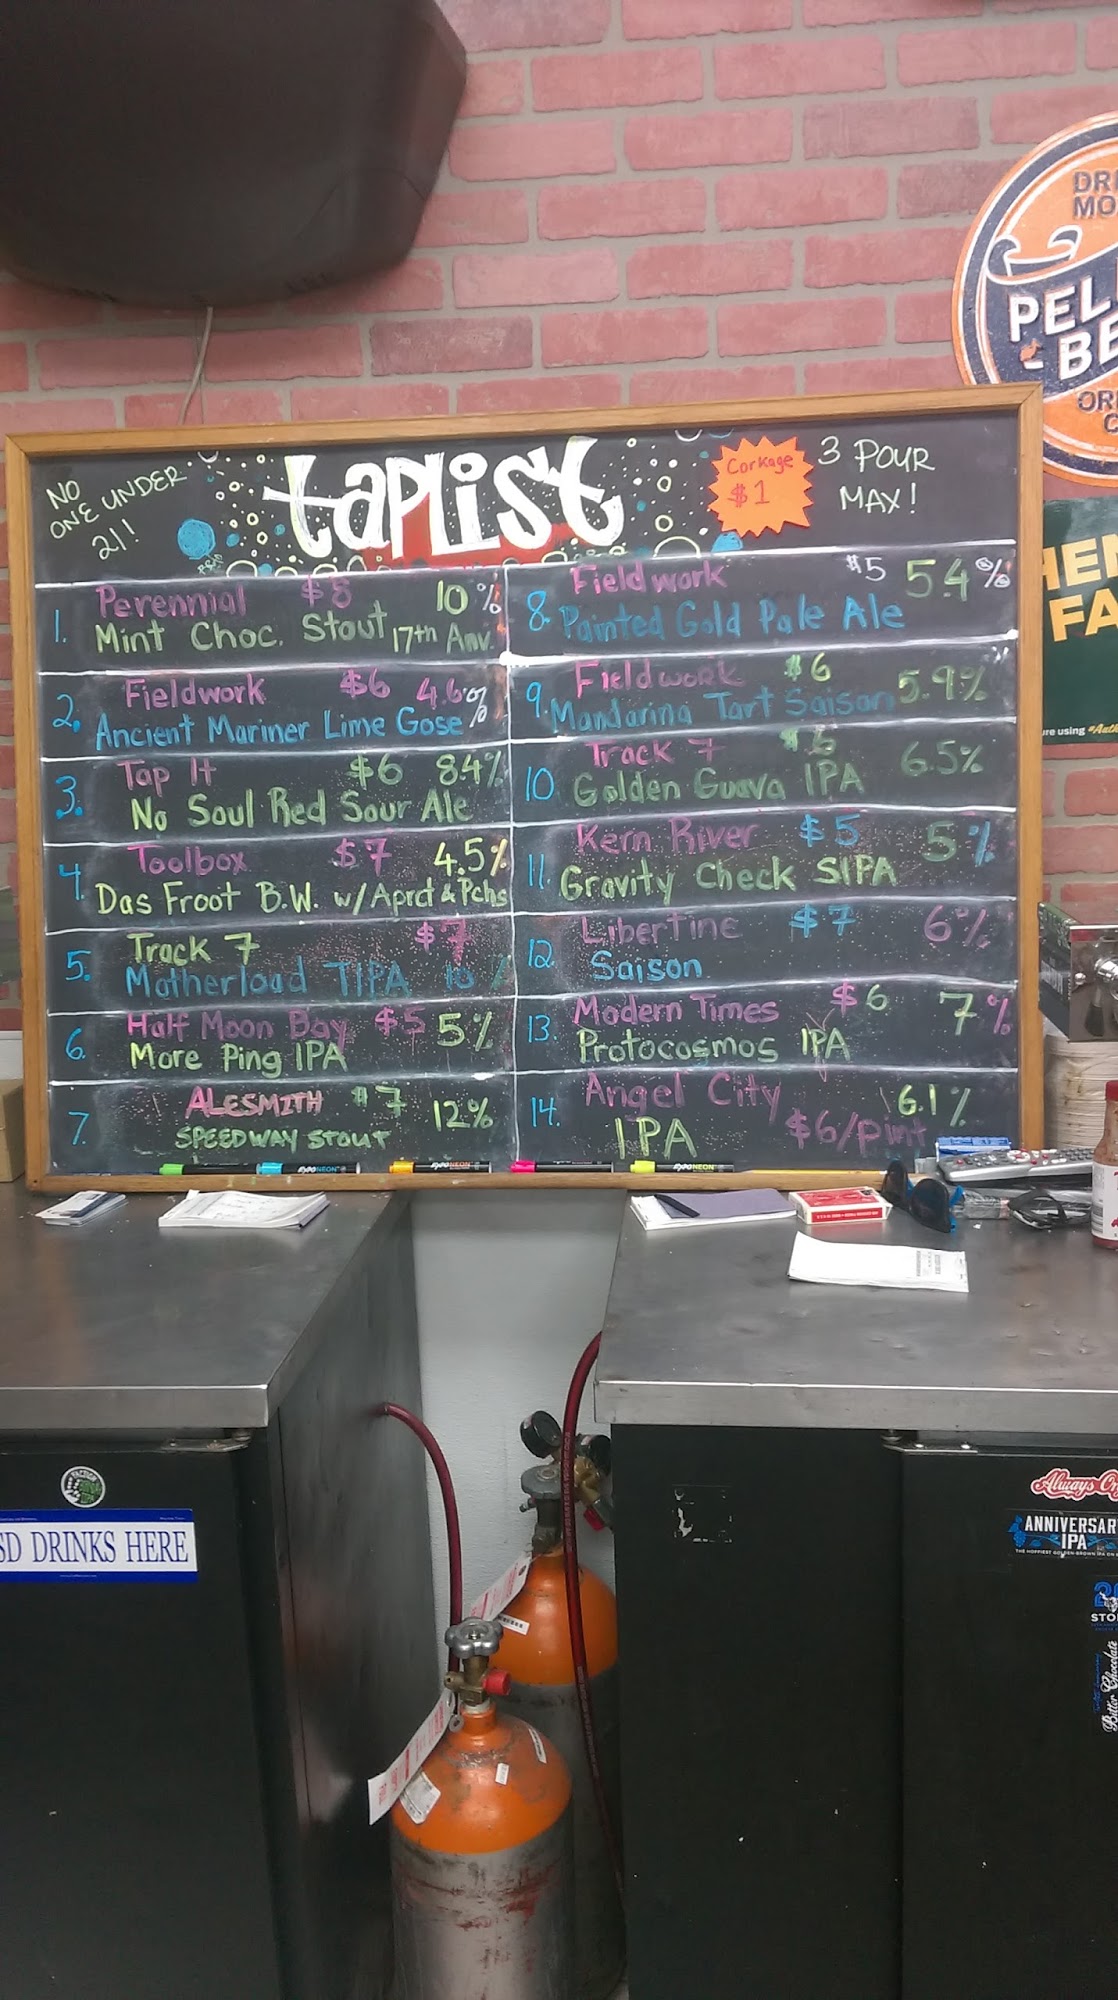 NO
ONE UNDER
21!
taplist
Corkage
$1
3 POUR
MAX!
1. Perennial $8 10%
Mint Choc. Stout 17th Anv.
2. Fieldwork $6 4.6%
Ancient Mariner Lime Gose
3. Tap It $6 8.4%
No Soul Red Sour Ale
4. Toolbox $7 4.5%
Das Froot B.W. w/Aprct & Pchs
5. Track 7 $7
Motherload TIPA 10%
6. Half Moon Bay $5 5%
More Ping IPA
7. ALESMITH $7 12%
SPEEDWAY STOUT
8. Fieldwork $5 5.4%
Painted Gold Pale Ale
9. Fieldwork $6 5.9%
Mandarina Tart Saison
10. Track 7 $6 6.5%
Golden Guava IPA
11. Kern River $5 5%
Gravity Check SIPA
12. Libertine $7 6%
Saison
13. Modern Times $6 7%
Protocosmos IPA
14. Angel City 6.1%
IPA $6/pint
EXPO NEON
SD DRINKS HERE
ANNIVERSAR
IPA
STO
Bitter Chocolate
DR
MO
PEL
BE
OR
C
HEN
FA
re using
Always